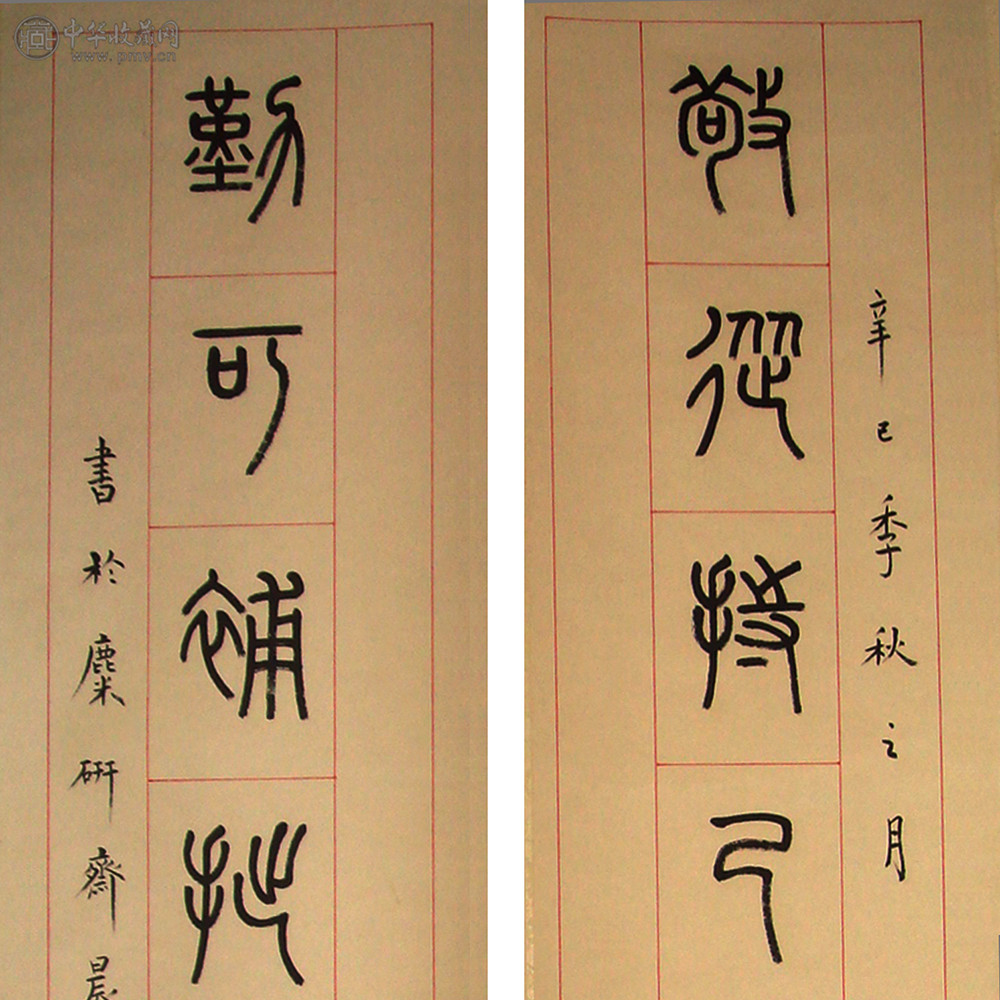 中华收藏网
www.pmw.cn
辛巳季秋之月
敬從持己
勤可補拙
書於麋研齋晨